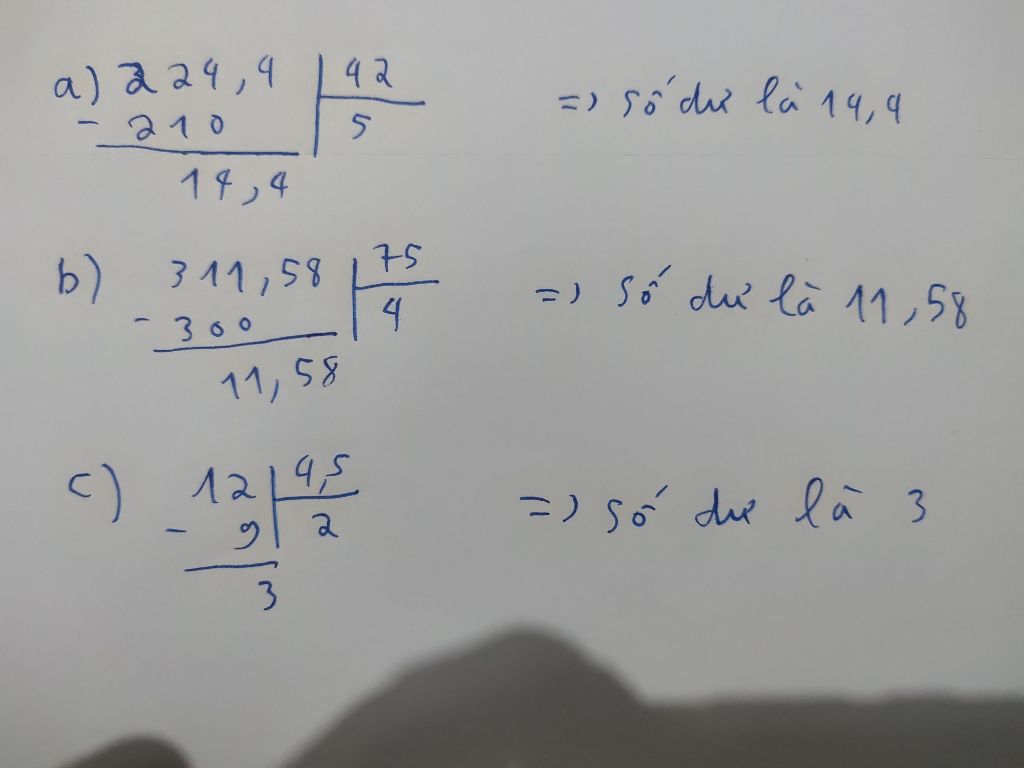 a) 224,4 42 => số dư là 14,4
- 210 5
14,4
b) 311,58 75 => số dư là 11,58
- 300 4
11,58
c) 12 4,5 => số dư là 3
- 9 2
3